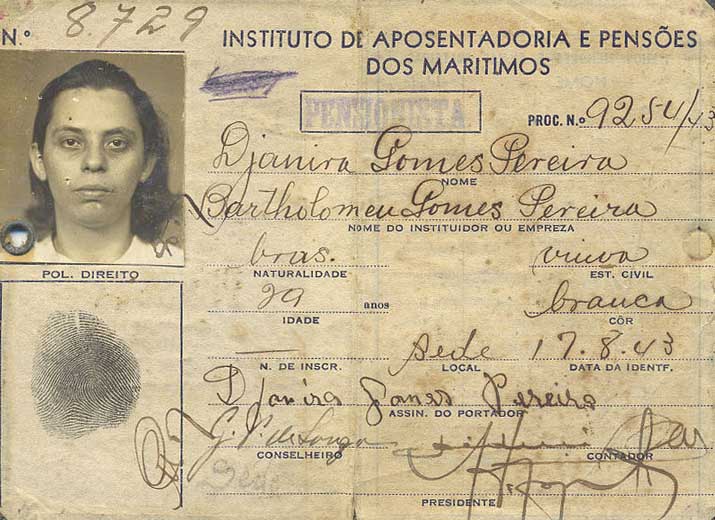 N.º 8.729
INSTITUTO DE APOSENTADORIA E PENSÕES
DOS MARITIMOS
PENSIONISTA
PROC. N.º 9254/43
Djanira Gomes Pereira
NOME
Bartholomeu Gomes Pereira
NOME DO INSTITUIDOR OU EMPREZA
POL. DIREITO
bras. viuva
NATURALIDADE EST. CIVIL
29 anos branca
IDADE CÔR
— sede 17.8.43
N. DE INSCR. LOCAL DATA DA IDENTF.
Djanira Gomes Pereira
ASSIN. DO PORTADOR
CONSELHEIRO CONTADOR
Sede
PRESIDENTE